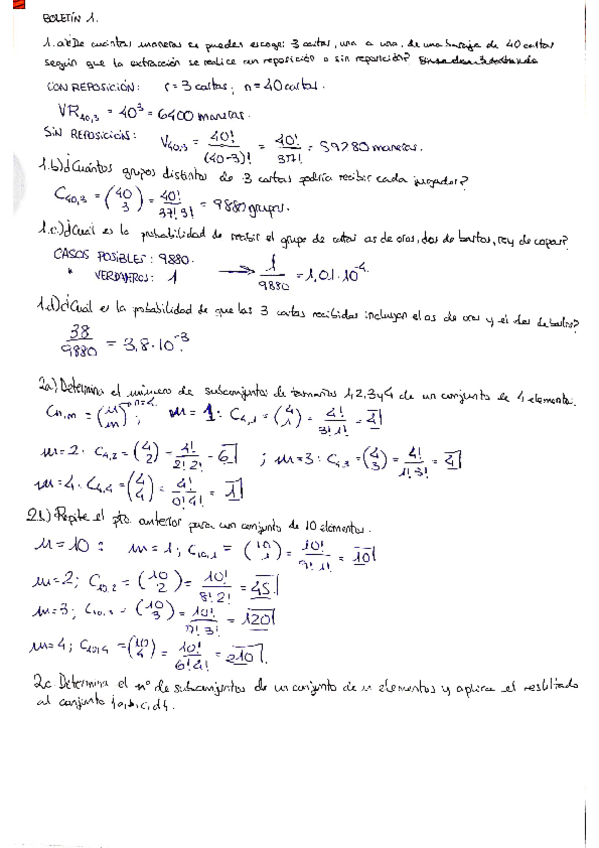 BOLETÍN 1.
1.a) ¿De cuántas maneras se pueden escoger 3 cartas, una a una, de una baraja de 40 cartas
según que la extracción se realice con reposición o sin reposición?
CON REPOSICIÓN: r = 3 cartas; n = 40 cartas.
VR40,3 = 40³ = 6400 maneras.
SIN REPOSICIÓN: V40,3 = 40!/(40-3)! = 40!/37! = 59280 maneras.
1.b) ¿Cuántos grupos distintos de 3 cartas podría recibir cada jugador?
C40,3 = (40 3) = 40!/37! 3! = 9880 grupos.
1.c) ¿Cuál es la probabilidad de recibir el grupo de cartas as de oros, dos de bastos, rey de copas?
CASOS POSIBLES: 9880.
" VERDADEROS: 1 → 1/9880 = 1,01·10⁻⁴.
1.d) ¿Cuál es la probabilidad de que las 3 cartas recibidas incluyan el as de oros y el dos de bastos?
38/9880 = 3,8·10⁻³.
2a) Determina el número de subconjuntos de tamaños 1,2,3 y 4 de un conjunto de 4 elementos.
Cn,m = (n m) n=4; m = 1: C4,1 = (4 1) = 4!/3! 1! = 4
m = 2: C4,2 = (4 2) = 4!/2! 2! = 6 ; m = 3: C4,3 = (4 3) = 4!/1! 3! = 4
m = 4: C4,4 = (4 4) = 4!/0! 4! = 1
2.b) Repite el pto. anterior para un conjunto de 10 elementos.
n = 10: m = 1; C10,1 = (10 1) = 10!/9! 1! = 10
m = 2; C10,2 = (10 2) = 10!/8! 2! = 45
m = 3; C10,3 = (10 3) = 10!/7! 3! = 120
m = 4; C10,4 = (10 4) = 10!/6! 4! = 210
2c. Determina el nº de subconjuntos de un conjunto de n elementos y aplica el resultado
al conjunto {a,b,c,d}.